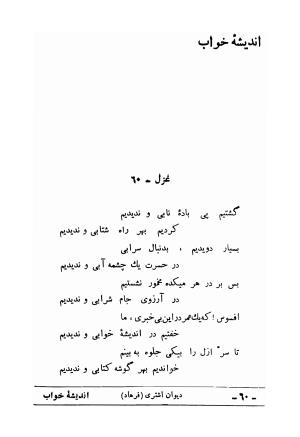 اندیشهٔ خواب
غزل ـ ۶۰
گشتیم پی بادهٔ نابی و ندیدیم
کردیم بهر راه شتابی و ندیدیم
بسیار دویدیم ، بدنبال سرابی
در حسرت یك چشمه آبی و ندیدیم
بس بر در هر میکده مخمور نشستیم
در آرزوی جام شرابی و ندیدیم
افسوس ! که یك عمر در این بی خبری ، ما
خفتیم در اندیشهٔ خوابی و ندیدیم
تا سرّ ازل را بیکی جلوه به بینم
خواندیم بهر گوشه کتابی و ندیدیم
ـ ۶۰ ـ دیوان اشتری (فرهاد) اندیشهٔ خواب